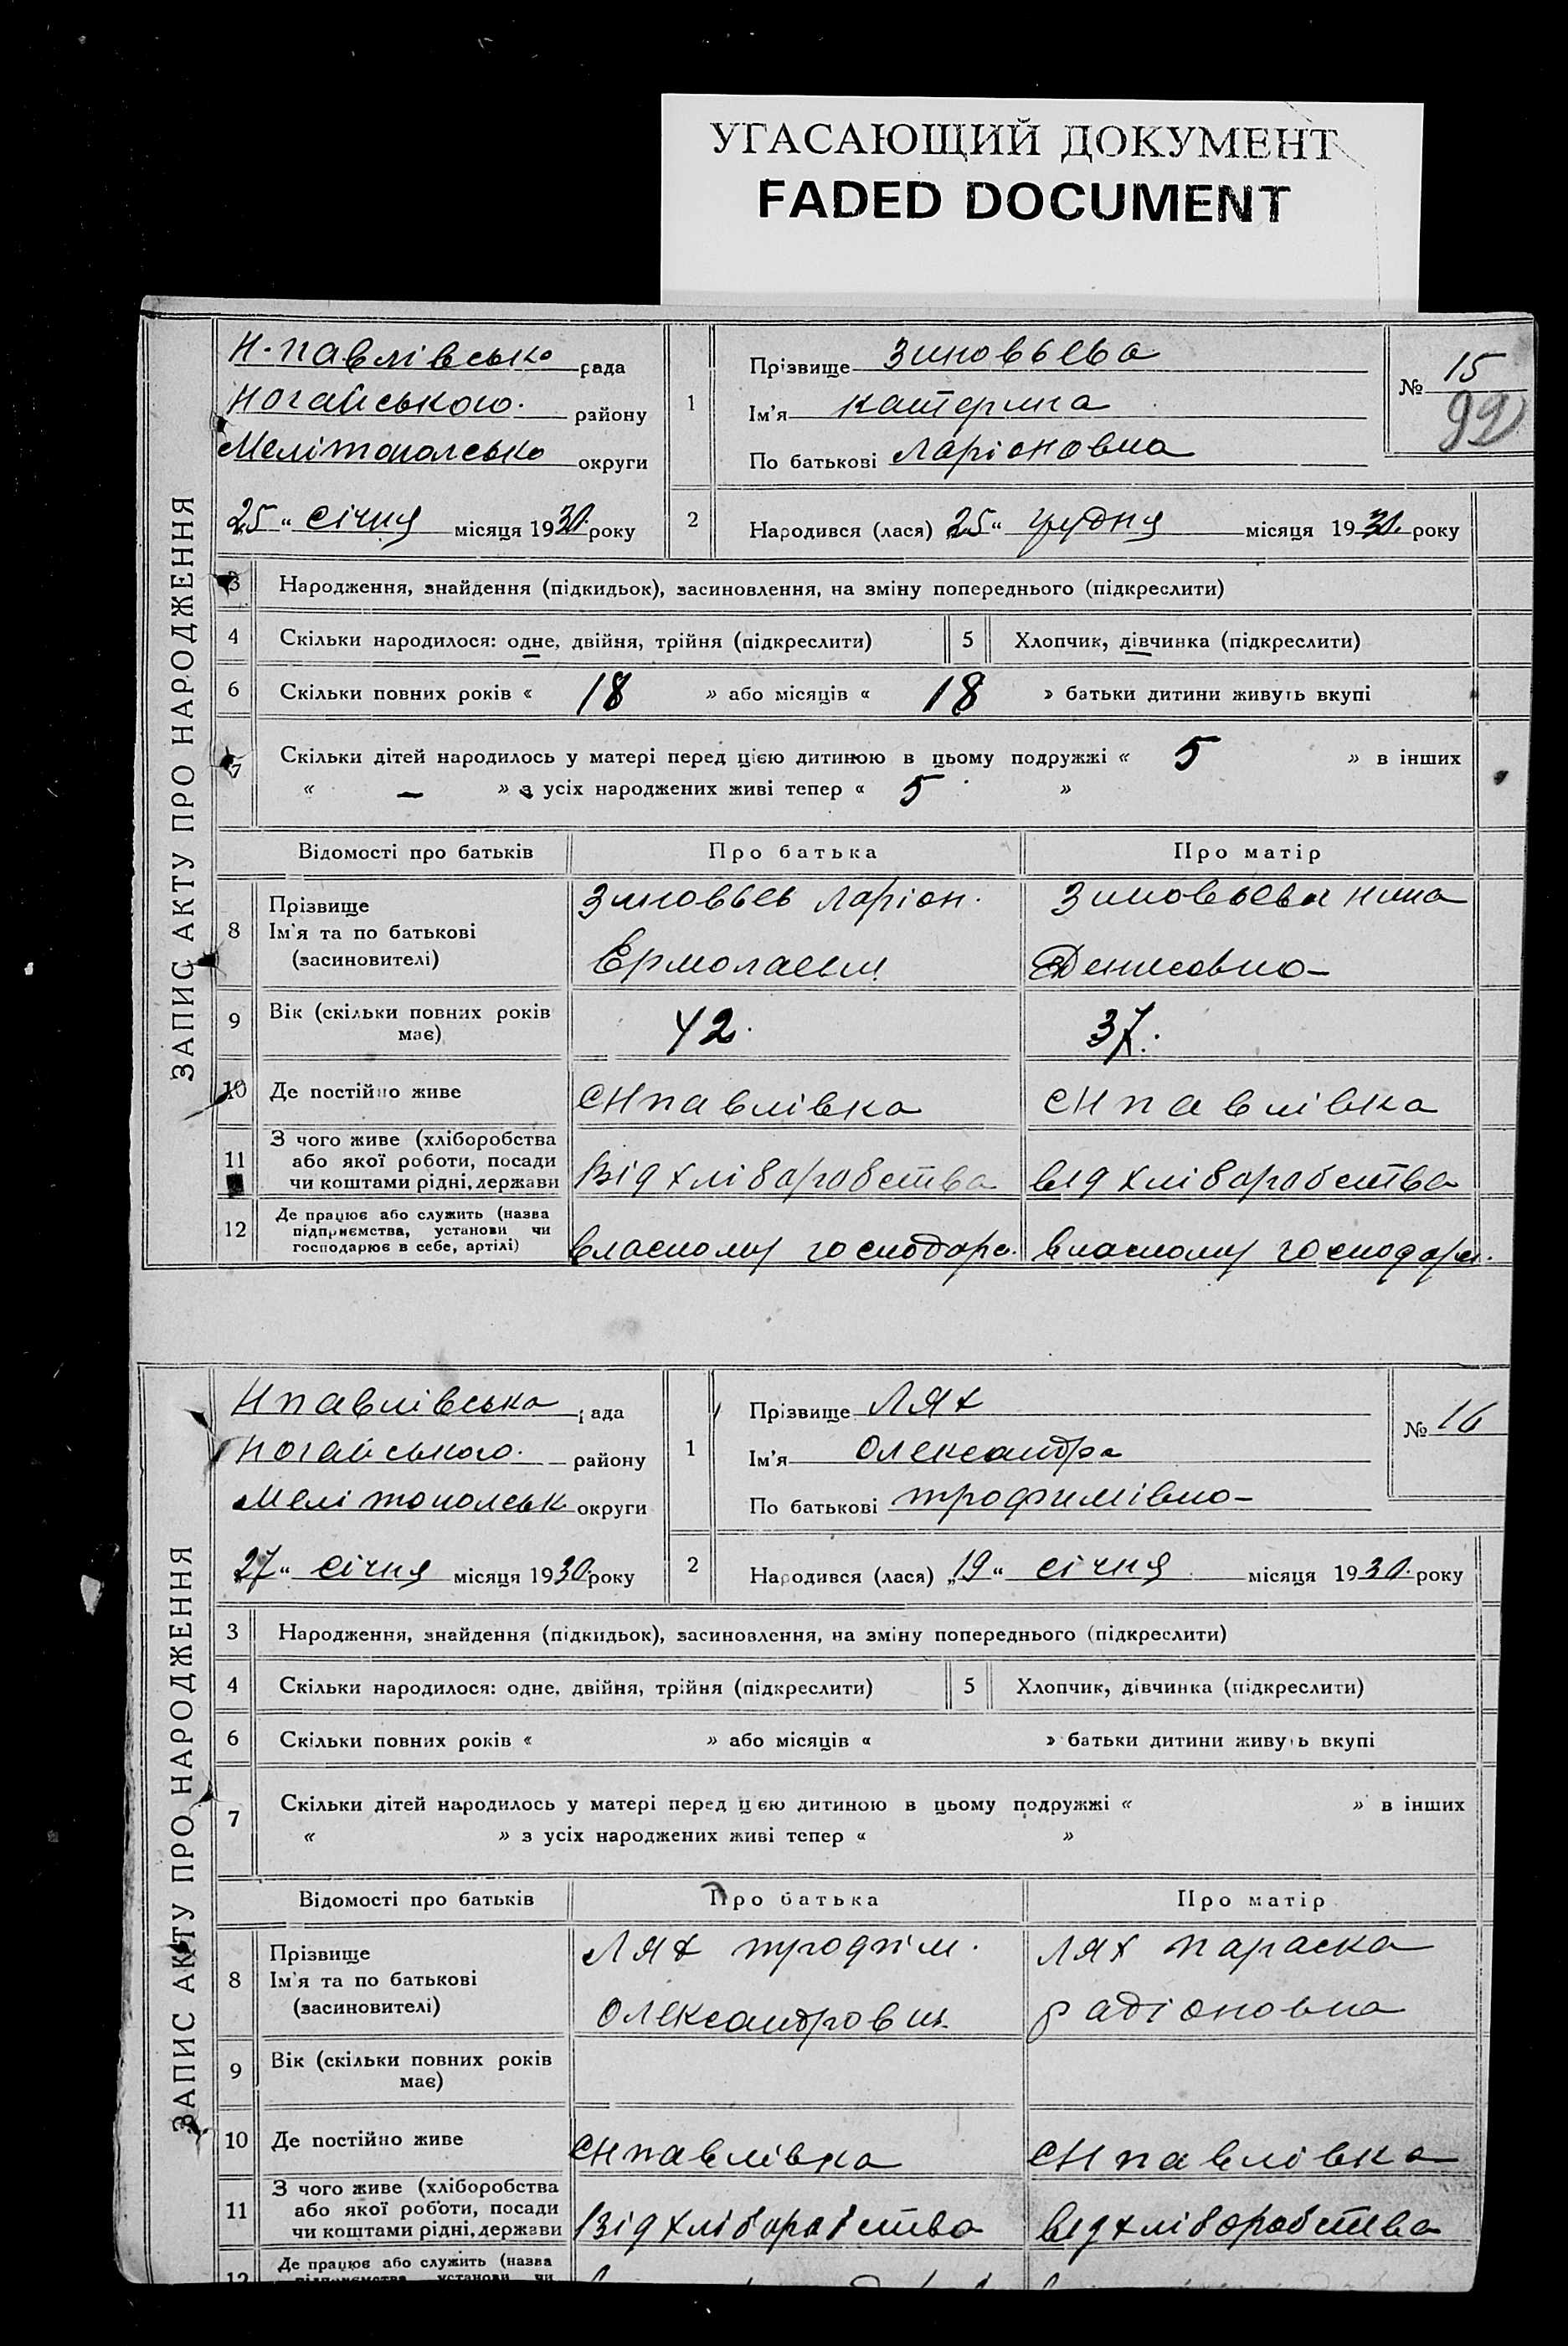 УГАСАЮЩИЙ ДОКУМЕНТ
FADED DOCUMENT
ЗАПИС АКТУ ПРО НАРОДЖЕННЯ
Н-павлівсько рада
Ногайського. району
Мелітопольсько округи
25 " січня місяця 1930 року
1
Прізвище Зиновьева
Ім'я катерина
По батькові Ларіоновна
№ 15
92
2
Народився (лася) 25 " грудня місяця 1930. року
3 Народження, знайдення (підкидьок), засиновлення, на зміну попереднього (підкреслити)
4 Скільки народилося: одне, двійня, трійня (підкреслити) 5 Хлопчик, дівчинка (підкреслити)
6 Скільки повних років « 18 » або місяців « 18 » батьки дитини живуть вкупі
7 Скільки дітей народилось у матері перед цією дитиною в цьому подружжі « 5 » в інших
« — » з усіх народжених живі тепер « 5 »
Відомості про батьків Про батька Про матір
8 Прізвище
Ім'я та по батькові
(засиновителі)
Зиновьев Ларіон.
Ермолаеви
Зиновьева нина
Денисовно
9 Вік (скільки повних років
має)
42.
37.
10 Де постійно живе СНпавлівка СНпавлівка
11 З чого живе (хліборобства
або якої роботи, посади
чи коштами рідні, держави
Від хліборобства від хліборобства
12 Де працює або служить (назва
підприємства, установи чи
господарює в себе, артілі)
власному господар. власному господар.
ЗАПИС АКТУ ПРО НАРОДЖЕННЯ
Нпавлівська рада
Ногайського. району
Мелітопольськ округи
27 " січня місяця 1930. року
1
Прізвище Лях
Ім'я Олександра
По батькові трофимівно
№ 16
2
Народився (лася) „19 " січня місяця 1930. року
3 Народження, знайдення (підкидьок), засиновлення, на зміну попереднього (підкреслити)
4 Скільки народилося: одне, двійня, трійня (підкреслити) 5 Хлопчик, дівчинка (підкреслити)
6 Скільки повних років « » або місяців « » батьки дитини живуть вкупі
7 Скільки дітей народилось у матері перед цією дитиною в цьому подружжі « » в інших
« » з усіх народжених живі тепер « »
Відомості про батьків Про батька Про матір
8 Прізвище
Ім'я та по батькові
(засиновителі)
Лях трофім.
Олександрович
лях параска
радіоновна
9 Вік (скільки повних років
має)
10 Де постійно живе СНпавлівка СНпавлівка
11 З чого живе (хліборобства
або якої роботи, посади
чи коштами рідні, держави
Від хліборобства від хліборобства
12 Де працює або служить (назва
підприємства, установи чи